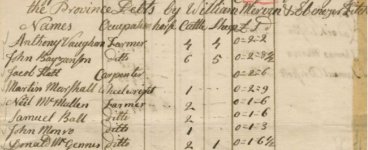 the Province Debts by William Mercer & Ebenezer
Names Occupation horse Cattle Sheep £ S D
Anthony Vaughan Farmer 4 4 0=2=2
John ditto 6 5 0=2=8½
Jacob Carpenter 0=2=6
Martin Marshall Wheelwright 1 0=2=9
Neil McMullen Farmer 2 0=1=6
Samuel Ball ditto 2 0=1=6
John Monro ditto 1 0=1=3
Donald McGennis ditto 2 1 0=1=6½